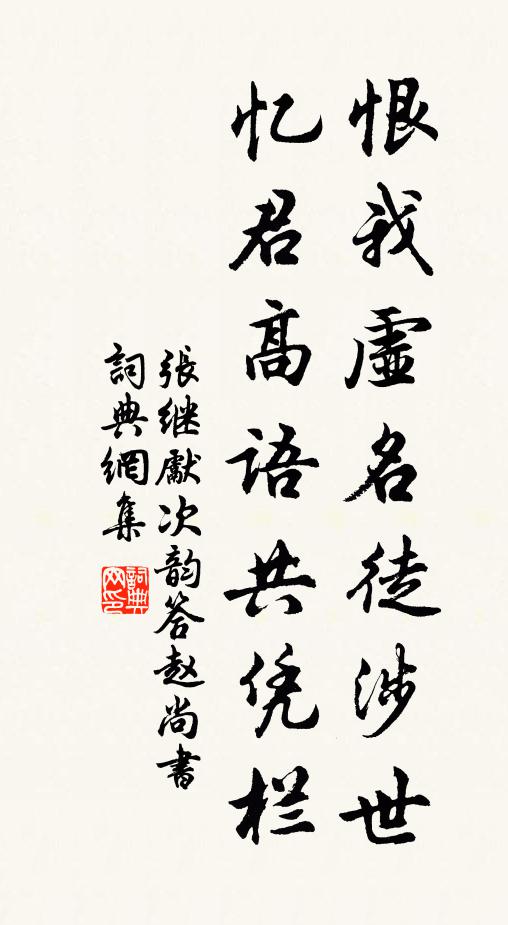 恨我虚名徒涉世
忆君高语共凭栏
張继獻次韵答赵尚書
詞典網集
詞典
网印